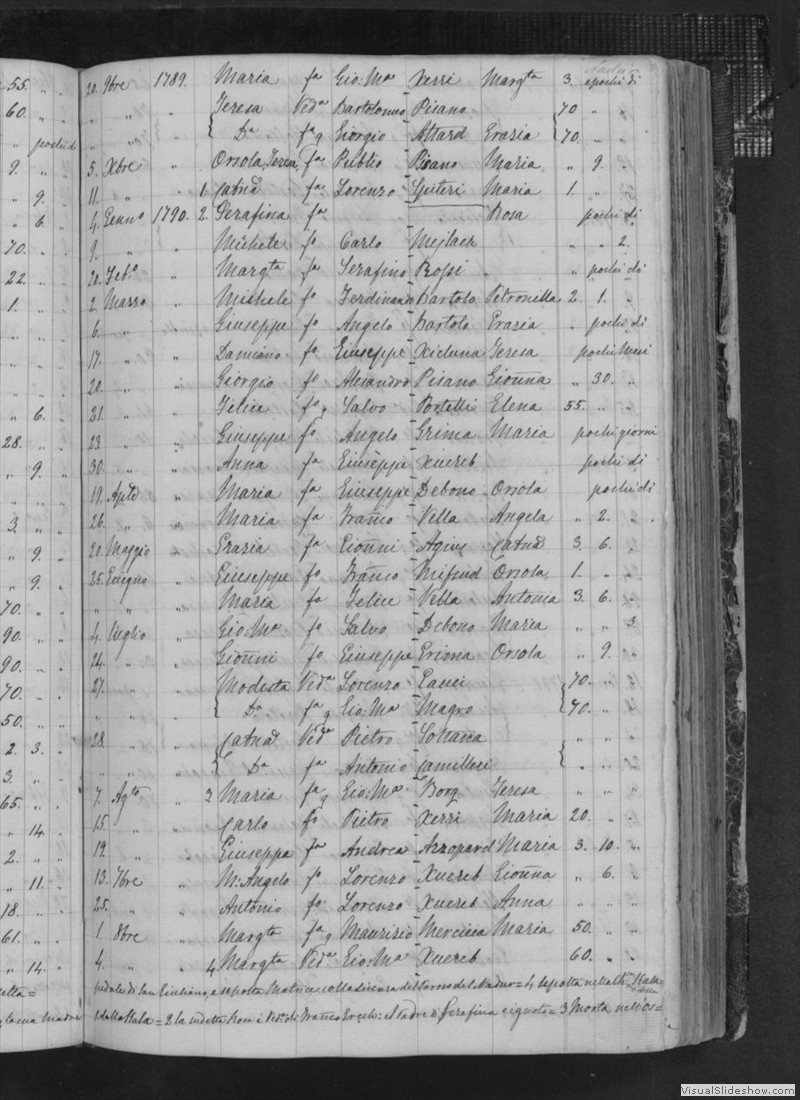 20. 9bre 1789. Maria fa Gio: Ma Xerri Margta 3. " pochi di
" " " Teresa Veda Bartolomeo Pisano 70 " "
" " " Da fa g Giorgio Attard Grazia 70. " "
5. Xbre " Orsola Teresa fa Publio Pisano Maria " 9. "
11. " " 1. Catna fa Lorenzo Spiteri Maria 1. " "
4. Genno 1790. 2. Serafina fa Rosa pochi di
9. " " Michele fo Carlo Mejlach " " 2.
20. Febo " Margta fa Serafino Rossi " pochi di
2. Marzo " Michele fo Ferdinando Bartolo Petronella 2. 1. "
6. " " Giuseppe fo Angelo Bartolo Grazia " pochi di
17. " " Damiano fo Giuseppe Xicluna Teresa pochi mesi
20. " " Giorgio fo Alesandro Pisano Gionna " 30. "
21. " " Felice fo g Salvo Portelli Elena 55. " "
23. " " Giuseppe fo Angelo Grima Maria pochi giorni
30. " " Anna fa Giuseppe Xuereb pochi di
19. Aple " Maria fa Giuseppe Debono Orsola pochi di
26. " " Maria fa Franco Vella Angela " 2. "
20. Maggio " Grazia fa Gionni Agius Catna 3. 6. "
25. Giugno " Giuseppe fo Franco Mifsud Orsola 1. " "
" " " Maria fa Felice Vella Antonia 3. 6. "
4. Luglio " Gio: Ma fo Salvo Debono Maria " " 3.
24. " " Gionni fo Giuseppe Grima Orsola " 9. "
27. " " Modesta Veda Lorenzo Cauci 70. " "
" " " Da fa g Gio: Ma Magro 70. " "
28. " " Catna Veda Pietro Soltana " " "
" " " Da fa Antonio Camilleri " " "
7. Agto " 3 Maria fa g Gio: Ma Borg Teresa " " "
15. " " Carlo fo Pietro Xerri Maria 20. " "
19. " " Giuseppa fa Andrea Azzopard Maria 3. 10. "
13. 7bre " M: Angelo fo Lorenzo Xuereb Gionna " 6. "
25. " " Antonio fo Lorenzo Xuereb Anna " " "
1. 8bre " Margta fa g Maurizio Mercieca Maria 50. " "
4. " " 4 Margta Veda Gio: Ma Xuereb 60. " "
di San Giuliano, e sepolta Matrice = 4 sepolta nella
= 2 la Franco el Padre di Serafina e ignoto = 3 Morta nell'
55. " "
60. " "
" pochi di
9. " "
" 9. "
" 6. "
70. " "
22. " "
1. " "
" 6. "
28. " "
" 9. "
3. " "
" 9. "
" 9. "
70. "
90. "
90. "
70. "
50. "
2. 3. "
3. " "
65. " "
" 14. "
2. " "
" 11. "
18. " "
61. " "
" 14. "
VisualSlideshow.com